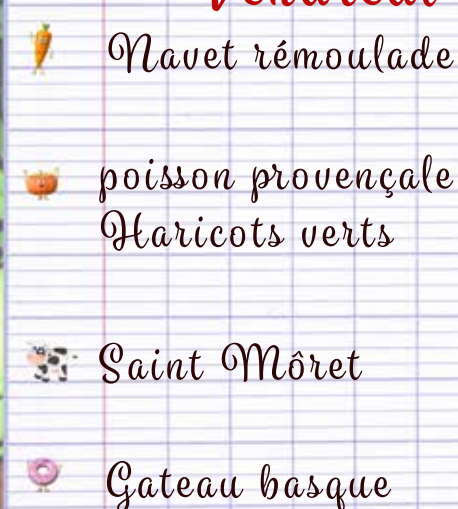 Navet rémoulade
poisson provençale
Haricots verts
Saint Môret
Gateau basque